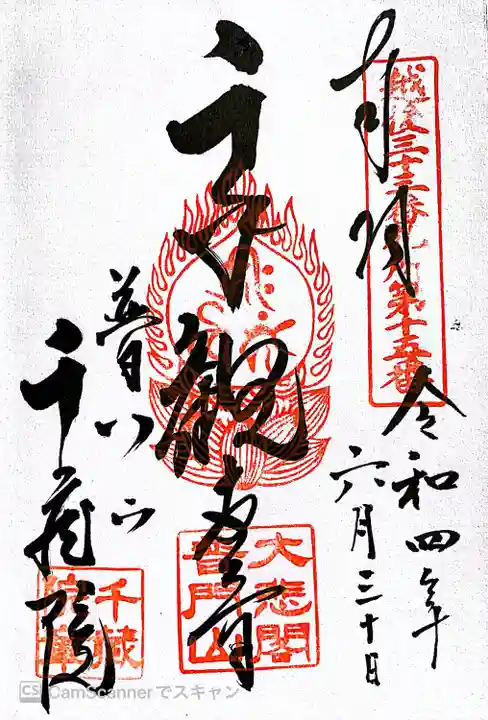 奉拝
越後三十三番札所第十五番
令和四年
六月三十日
観世音
大悲閣
普門山
普門山
千蔵院
千蔵
CS CamScannerでスキャン